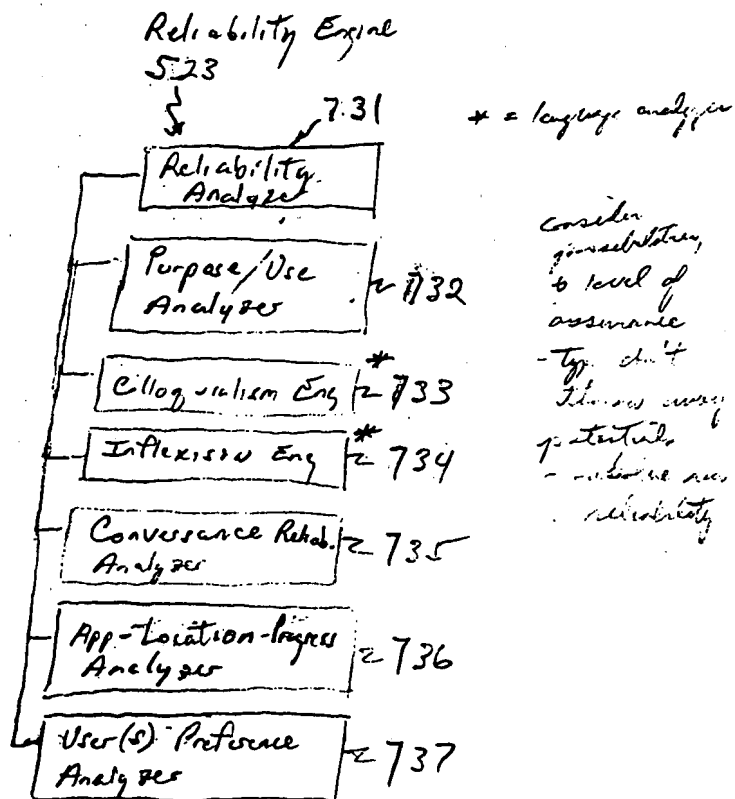 Reliability Engine
523
731
* = language analyzer
Reliability
Analyzer
Purpose/Use
Analyzer
732
Cilloquialism Eng
*
733
Inflexison Eng
*
734
Conversance Reliab.
Analyzer
735
App-Location-Progress
Analyzer
736
User(s) Preference
Analyzer
737
consider
possibilities,
level of
assurance
- Typ. don't
throw away
potentials
-
reliability